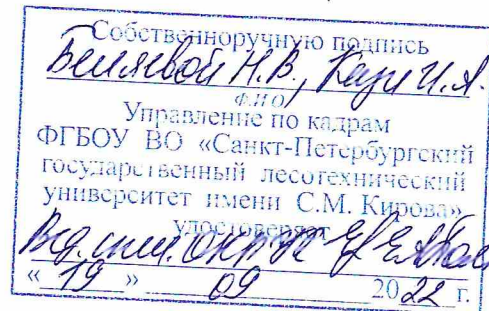 Собственноручную подпись
Беляевой Н.В., Кази И.А.
Ф.И.О
Управление по кадрам
ФГБОУ ВО «Санкт-Петербургский
государственный лесотехнический
университет имени С.М. Кирова»
удостоверяет
Вед. спец.
« 19 » 09 2022 г.